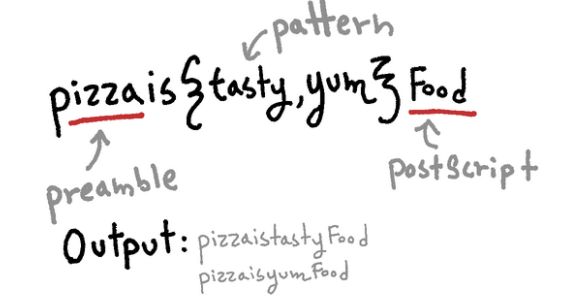 pattern
pizzais{tasty,yum}Food
preamble
postScript
Output: pizzaistastyFood
pizzaisyumFood